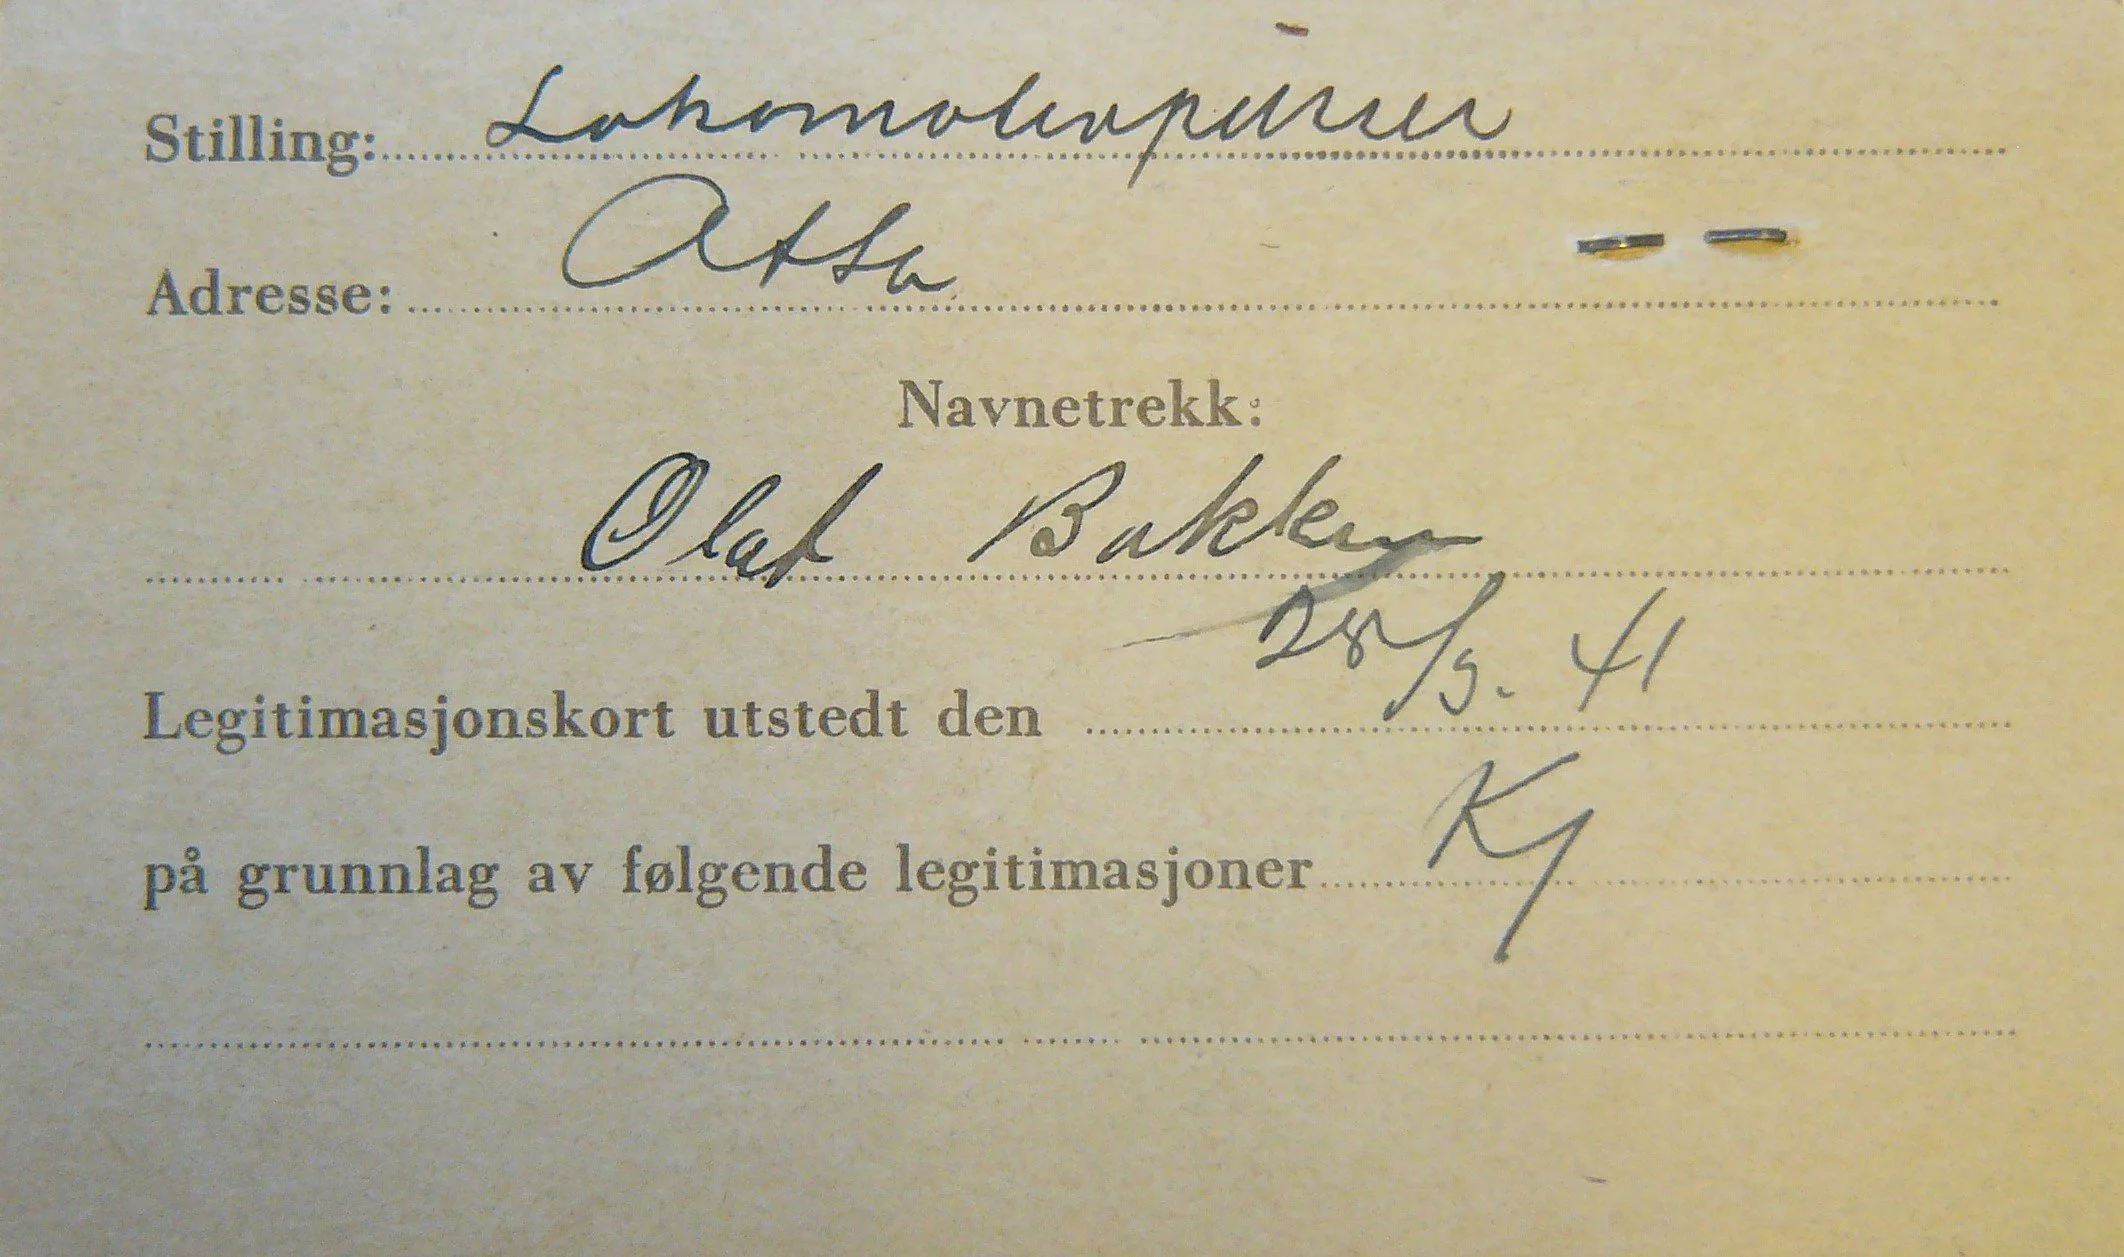 Stilling: Lokomotivpusser
Adresse: Atta
Navnetrekk:
Olaf Bakken
Legitimasjonskort utstedt den 28/9. 41
på grunnlag av følgende legitimasjoner Kj